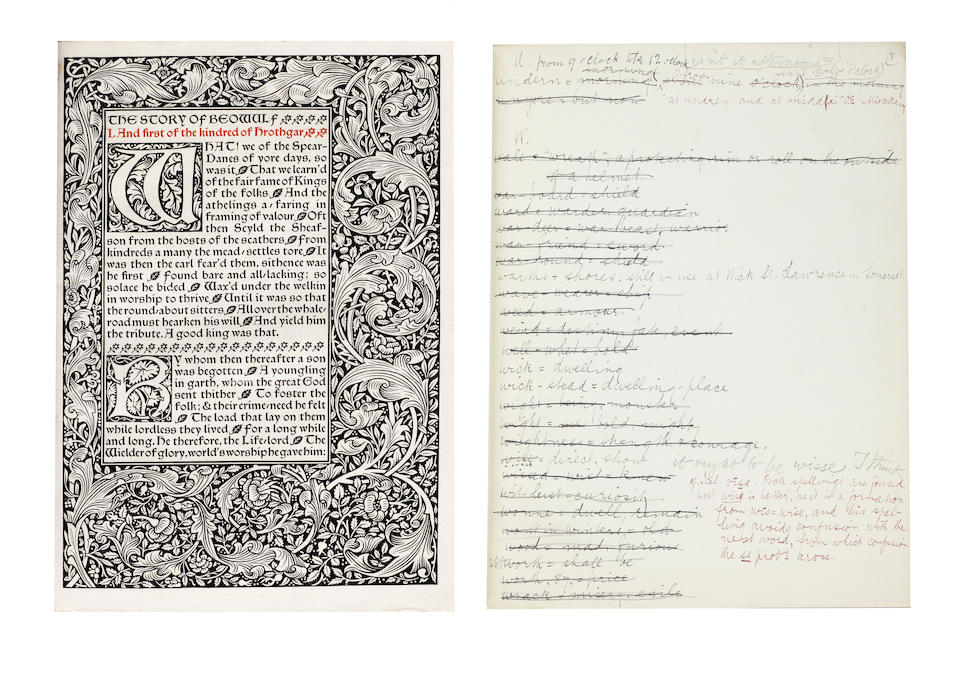 THE STORY OF BEOWULF
I. And first of the kindred of Hrothgar
WHAT! we of the Spear-
Danes of yore days, so
was it That we learn'd
of the fair fame of Kings
of the folks And the
athelings a-faring in
framing of valour. Oft
then Scyld the Sheaf-
son from the hosts of the scathers, From
kindreds a many the mead-settles tore; It
was then the earl fear'd them, sithence was
he first Found bare and all-lacking; so
solace he bided, Wax'd under the welkin
in worship to thrive, Until it was so that
the round-about sitters, All over the whale-
road must hearken his will And yield him
the tribute. A good king was that.
BY whom then thereafter a son
was begotten, A youngling
in garth, whom the great God
sent thither To foster the
folk; & their crime-need he felt
The load that lay on them
while lordless they lived For a long while
and long. He therefore, the Life-lord, The
Wielder of glory, world's worship he gave him:
U. from 9 o'clock till 12 o'clock isn't it afternoon
undern = morning from about nine o'clock in the morning
ungore = but now "at undren and at middai" OE
W.
wale = "wreath" a protecting rim or roll on the outside
of a helmet
war-board = shield
ward = warder, guardian
war-deer = war-beast, warrior
war-friend = sword
war-round = shield
warths = shores, still in use at Wick St. Lawrence in Somerset
wave-wearer = ship
weed = armour
weird = destiny, fate, event
well = whet = bold
wick = dwelling
wick-stead = dwelling-place
wight = being, monster
wight =
wightness = strength & courage.
wise = direct, show it ought to be wisse I think
cf. Both spellings are found
but wise is better, as it is a formation
from wis = wise, and this spel-
ling avoids confusion with the
next word, from which confusion
the ss prob: arose.
wit-lust = curiosity
wonne = dwell, remain
worn in winters = old
wood = mad, furious
worth = shall be
worth, sb. = price
wrack = misery, exile